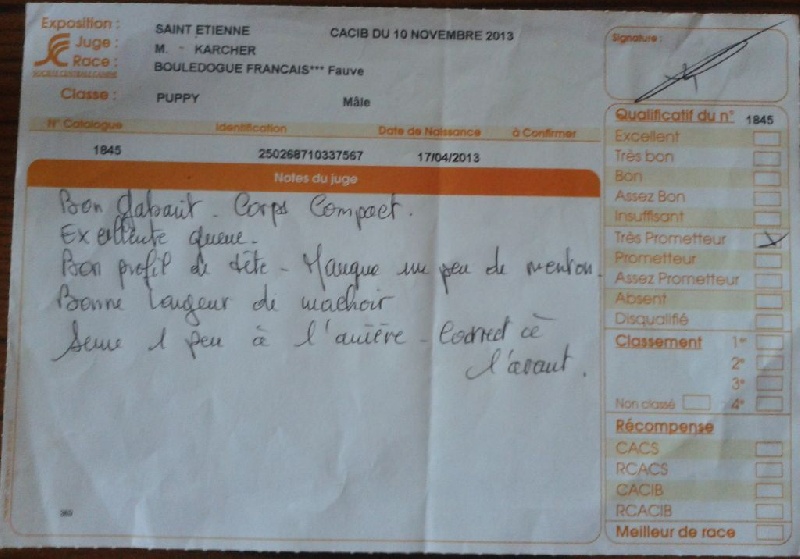 Exposition : SAINT ETIENNE CACIB DU 10 NOVEMBRE 2013
Juge : M. - KARCHER
Race : BOULEDOGUE FRANCAIS*** Fauve
SOCIÉTÉ CENTRALE CANINE
Classe : PUPPY Mâle
N° Catalogue Identification Date de Naissance à Confirmer
1845 250268710337567 17/04/2013
Notes du juge
Bon gabarit - Corps Compact.
Excellente queue -
Bon profil de tête - Manque un peu de menton.
Bonne largeur de machoir
Serre 1 peu à l'arrière - Correct à
l'avant.
Signature :
Qualificatif du n° 1845
Excellent
Très bon
Bon
Assez Bon
Insuffisant
Très Prometteur
Prometteur
Assez Prometteur
Absent
Disqualifié
Classement 1er
2e
3e
Non classé 4e
Récompense
CACS
RCACS
CACIB
RCACIB
Meilleur de race